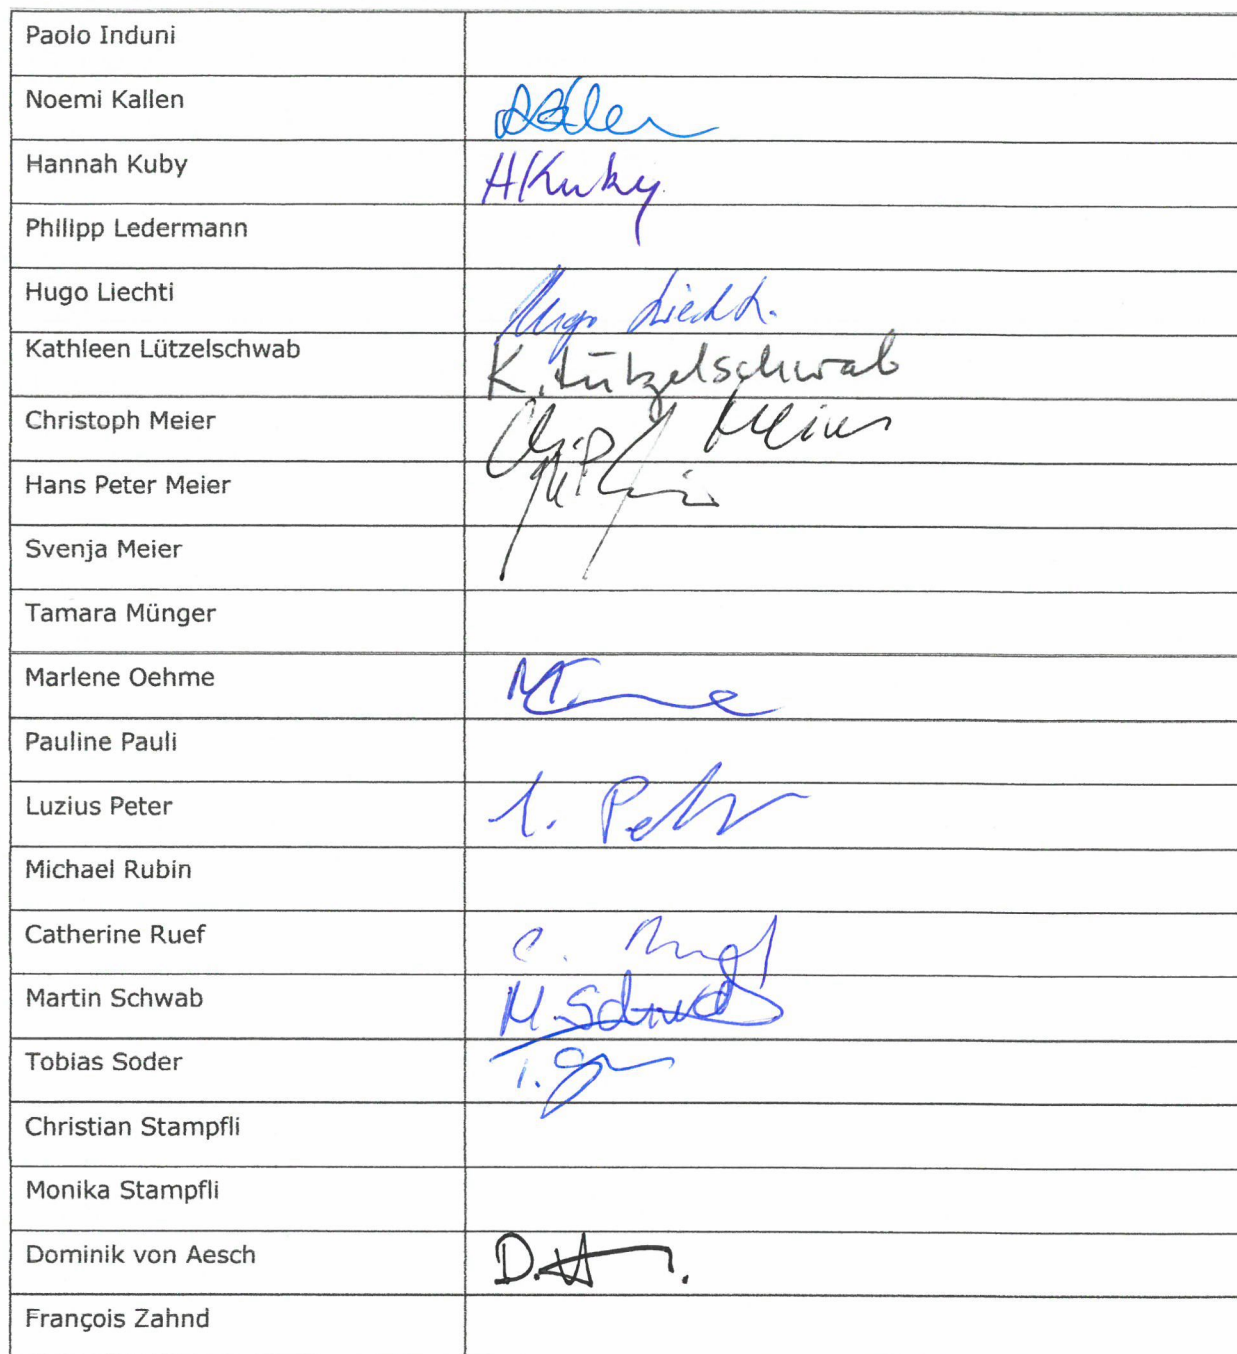 Paolo Induni
Noemi Kallen
Hannah Kuby HKuby
Philipp Ledermann
Hugo Liechti Hugo Liechti
Kathleen Lützelschwab K. Lützelschwab
Christoph Meier Meier
Hans Peter Meier
Svenja Meier
Tamara Münger
Marlene Oehme
Pauline Pauli
Luzius Peter L. Peter
Michael Rubin
Catherine Ruef C. Ruef
Martin Schwab M. Schwab
Tobias Soder
Christian Stampfli
Monika Stampfli
Dominik von Aesch
François Zahnd